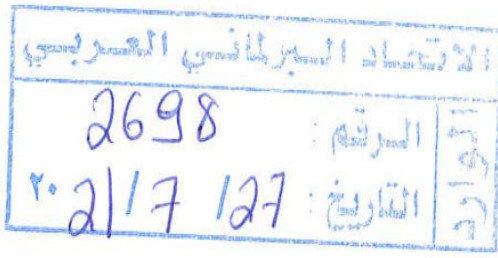 الاتحاد البرلماني العربي
الوارد
الرقم : 2698
التاريخ : 27/ 7 /21 ٢٠